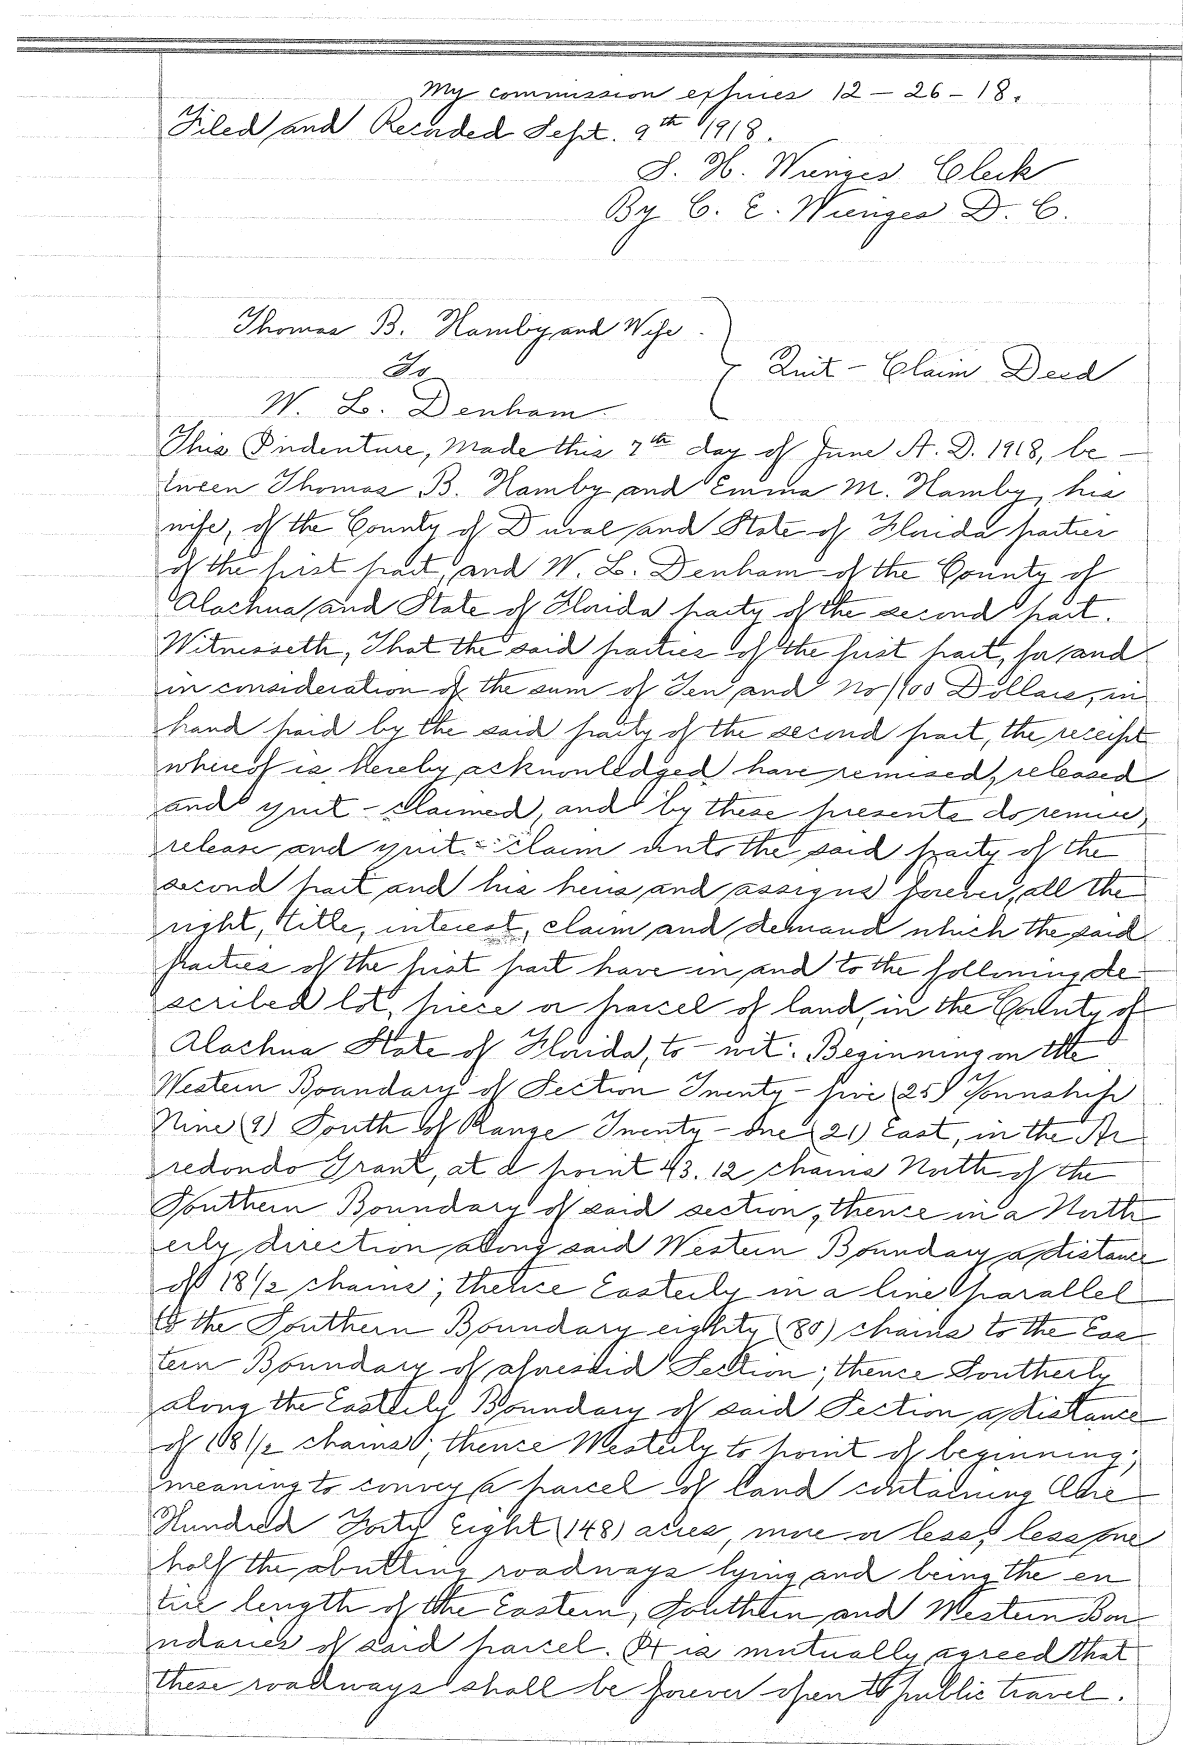 My commission expires 12 - 26 - 18.
Filed and Recorded Sept. 9th 1918.
S. H. Wienges Clerk
By C. E. Wienges D. C.
Thomas B. Hamby and Wife
To
Quit - Claim Deed
W. L. Denham.
This Indenture, Made this 7th day of June A. D. 1918, be -
tween Thomas B. Hamby and Emma M. Hamby, his
wife, of the County of Duval and State of Florida parties
of the first part, and W. L. Denham of the County of
Alachua and State of Florida party of the second part.
Witnesseth, That the said parties of the first part, for and
in consideration of the sum of Ten and no/100 Dollars, in
hand paid by the said party of the second part, the receipt
whereof is hereby acknowledged have remised, released
and quit - claimed, and by these presents do remise,
release and quit - claim unto the said party of the
second part and his heirs and assigns forever, all the
right, title, interest, claim and demand which the said
parties of the first part have in and to the following de
scribed lot, piece or parcel of land, in the County of
Alachua State of Florida, to - wit: Beginning on the
Western Boundary of Section Twenty - five (25) Township
Nine (9) South of Range Twenty - One (21) East, in the Ar
redondo Grant, at a point 43.12 chains North of the
Southern Boundary of said section, thence in a North
erly direction along said Western Boundary a distance
of 18 1/2 chains; thence Easterly in a line parallel
to the Southern Boundary eighty (80) chains to the Eas
tern Boundary of aforesaid Section; thence Southerly
along the Easterly Boundary of said Section a distance
of 18 1/2 chains; thence Westerly to point of beginning;
meaning to convey a parcel of land containing One
Hundred Forty Eight (148) acres, more or less, less one
half the abutting roadways lying and being the en
tire length of the Eastern, Southern and Western Bou
ndaries of said parcel. It is mutually agreed that
these roadways shall be forever open to public travel.